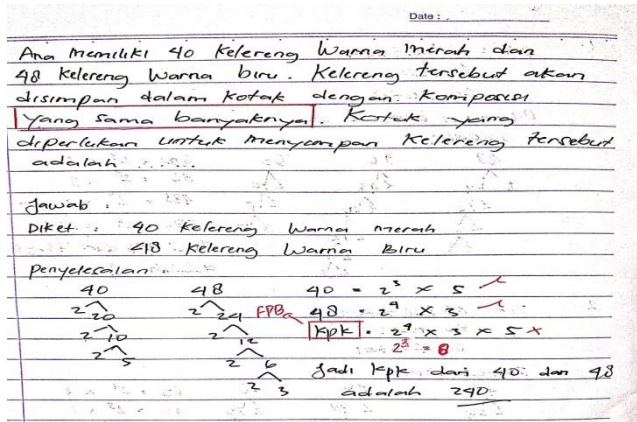 Date :
Ana memiliki 40 Kelereng Warna merah dan
48 Kelereng Warna biru. Kelereng tersebut akan
disimpan dalam Kotak dengan Komposisi
yang sama banyaknya. Kotak yang
diperlukan untuk menyimpan Kelereng tersebut
adalah .....
Jawab :
Diket : 40 Kelereng Warna merah
48 Kelereng Warna Biru
Penyelesaian
40 48 40 = 2³ × 5
2 20 2 24 FPB 48 = 2⁴ × 3
2 10 2 12 KPK = 2⁴ × 3 × 5 ×
2 5 2 6 2³ = 8
2 3 Jadi KPK dari 40 dan 48
adalah 240